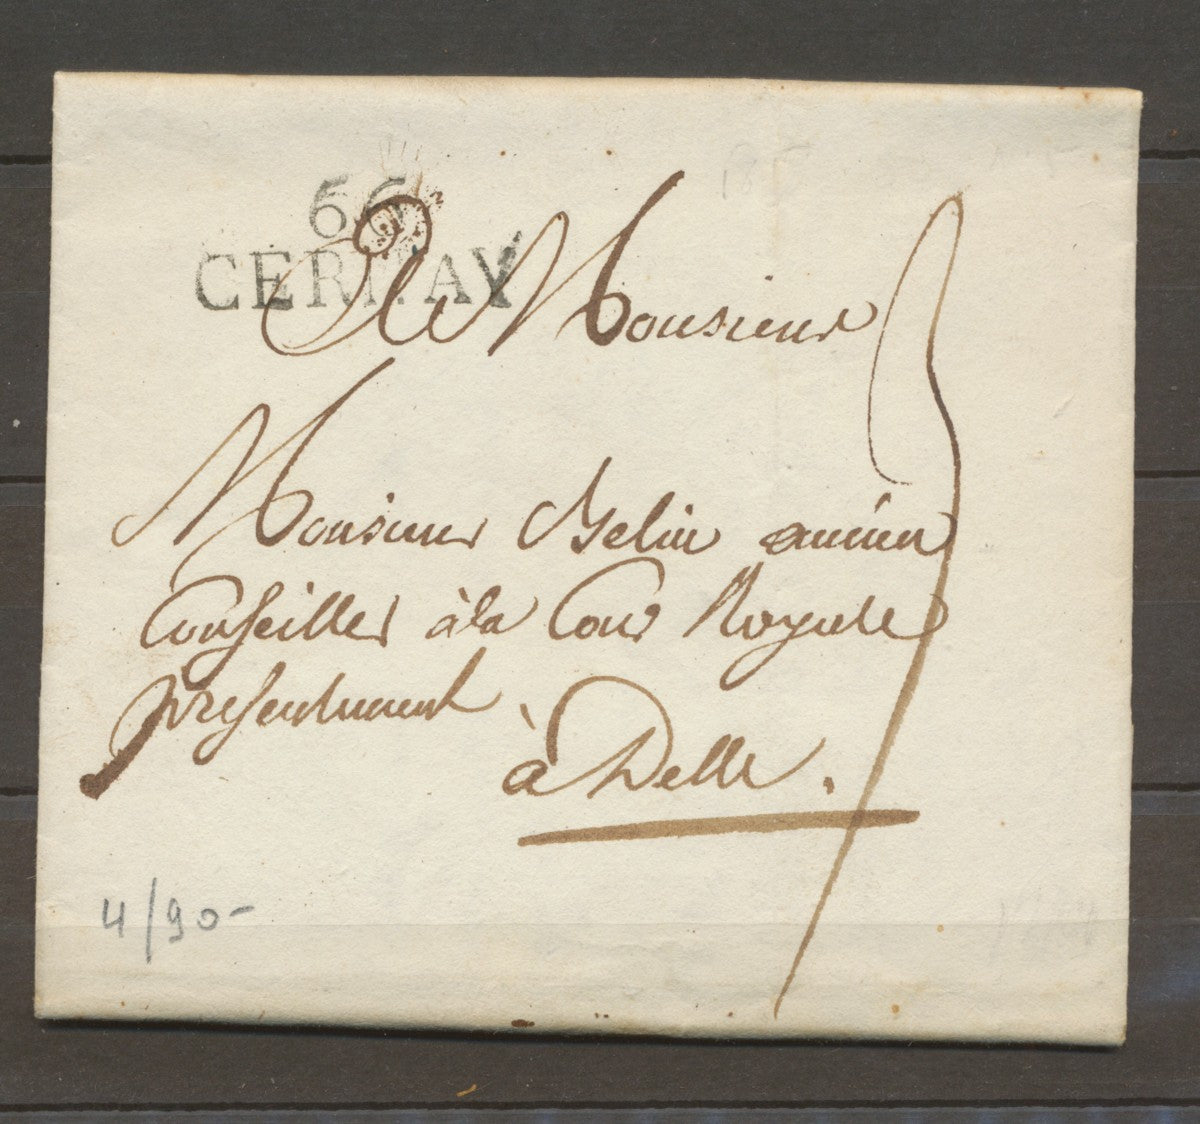 66
CERNAY
A Monsieur
Monsieur Belin ancien
Conseiller à la Cour Royale
presentement
à Delle.
4/90-